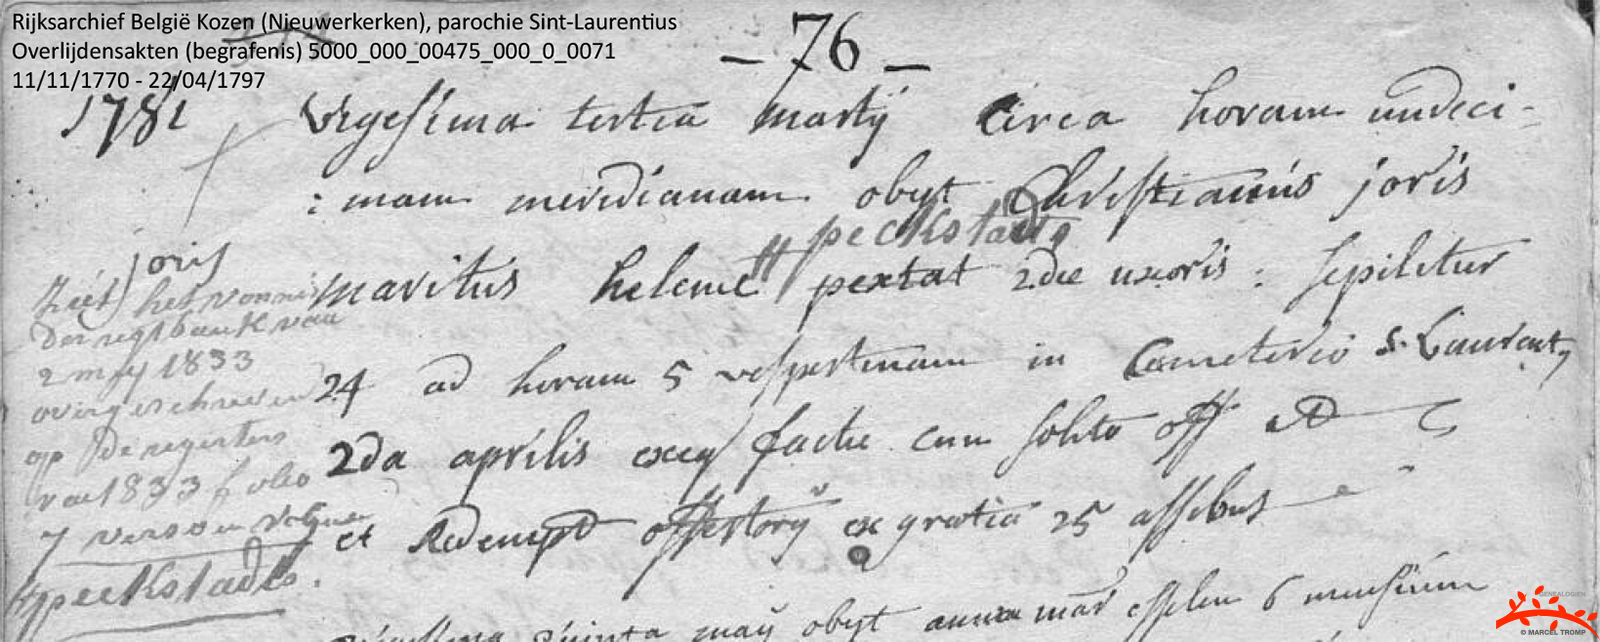 Rijksarchief België Kozen (Nieuwerkerken), parochie Sint-Laurentius
Overlijdensakten (begrafenis) 5000_000_00475_000_0_0071
11/11/1770 - 22/04/1797
- 76 -
1781
Vigesima tertia martij Circa horam undeci-
:mam meridianam obyt Christianus joris
# peckstadts
maritus helene pextat 2dae uxoris : sepilitur
24 ad horam 5 vespertinam in Cemeterio S. Laurenty
2da aprilis exeq factae cum solito off et
et Redempt offertorÿ ex gratia 25 assibus
quinta maÿ obyt anna mar esselen 6 mensium
joris
Ziet) het vonnis
der regtbank van
2 mey 1833
overgeschreven
op de registers
van 1833 folio
7 verso en
# peckstadts.
GENEALOGIEN
© MARCEL TROMP